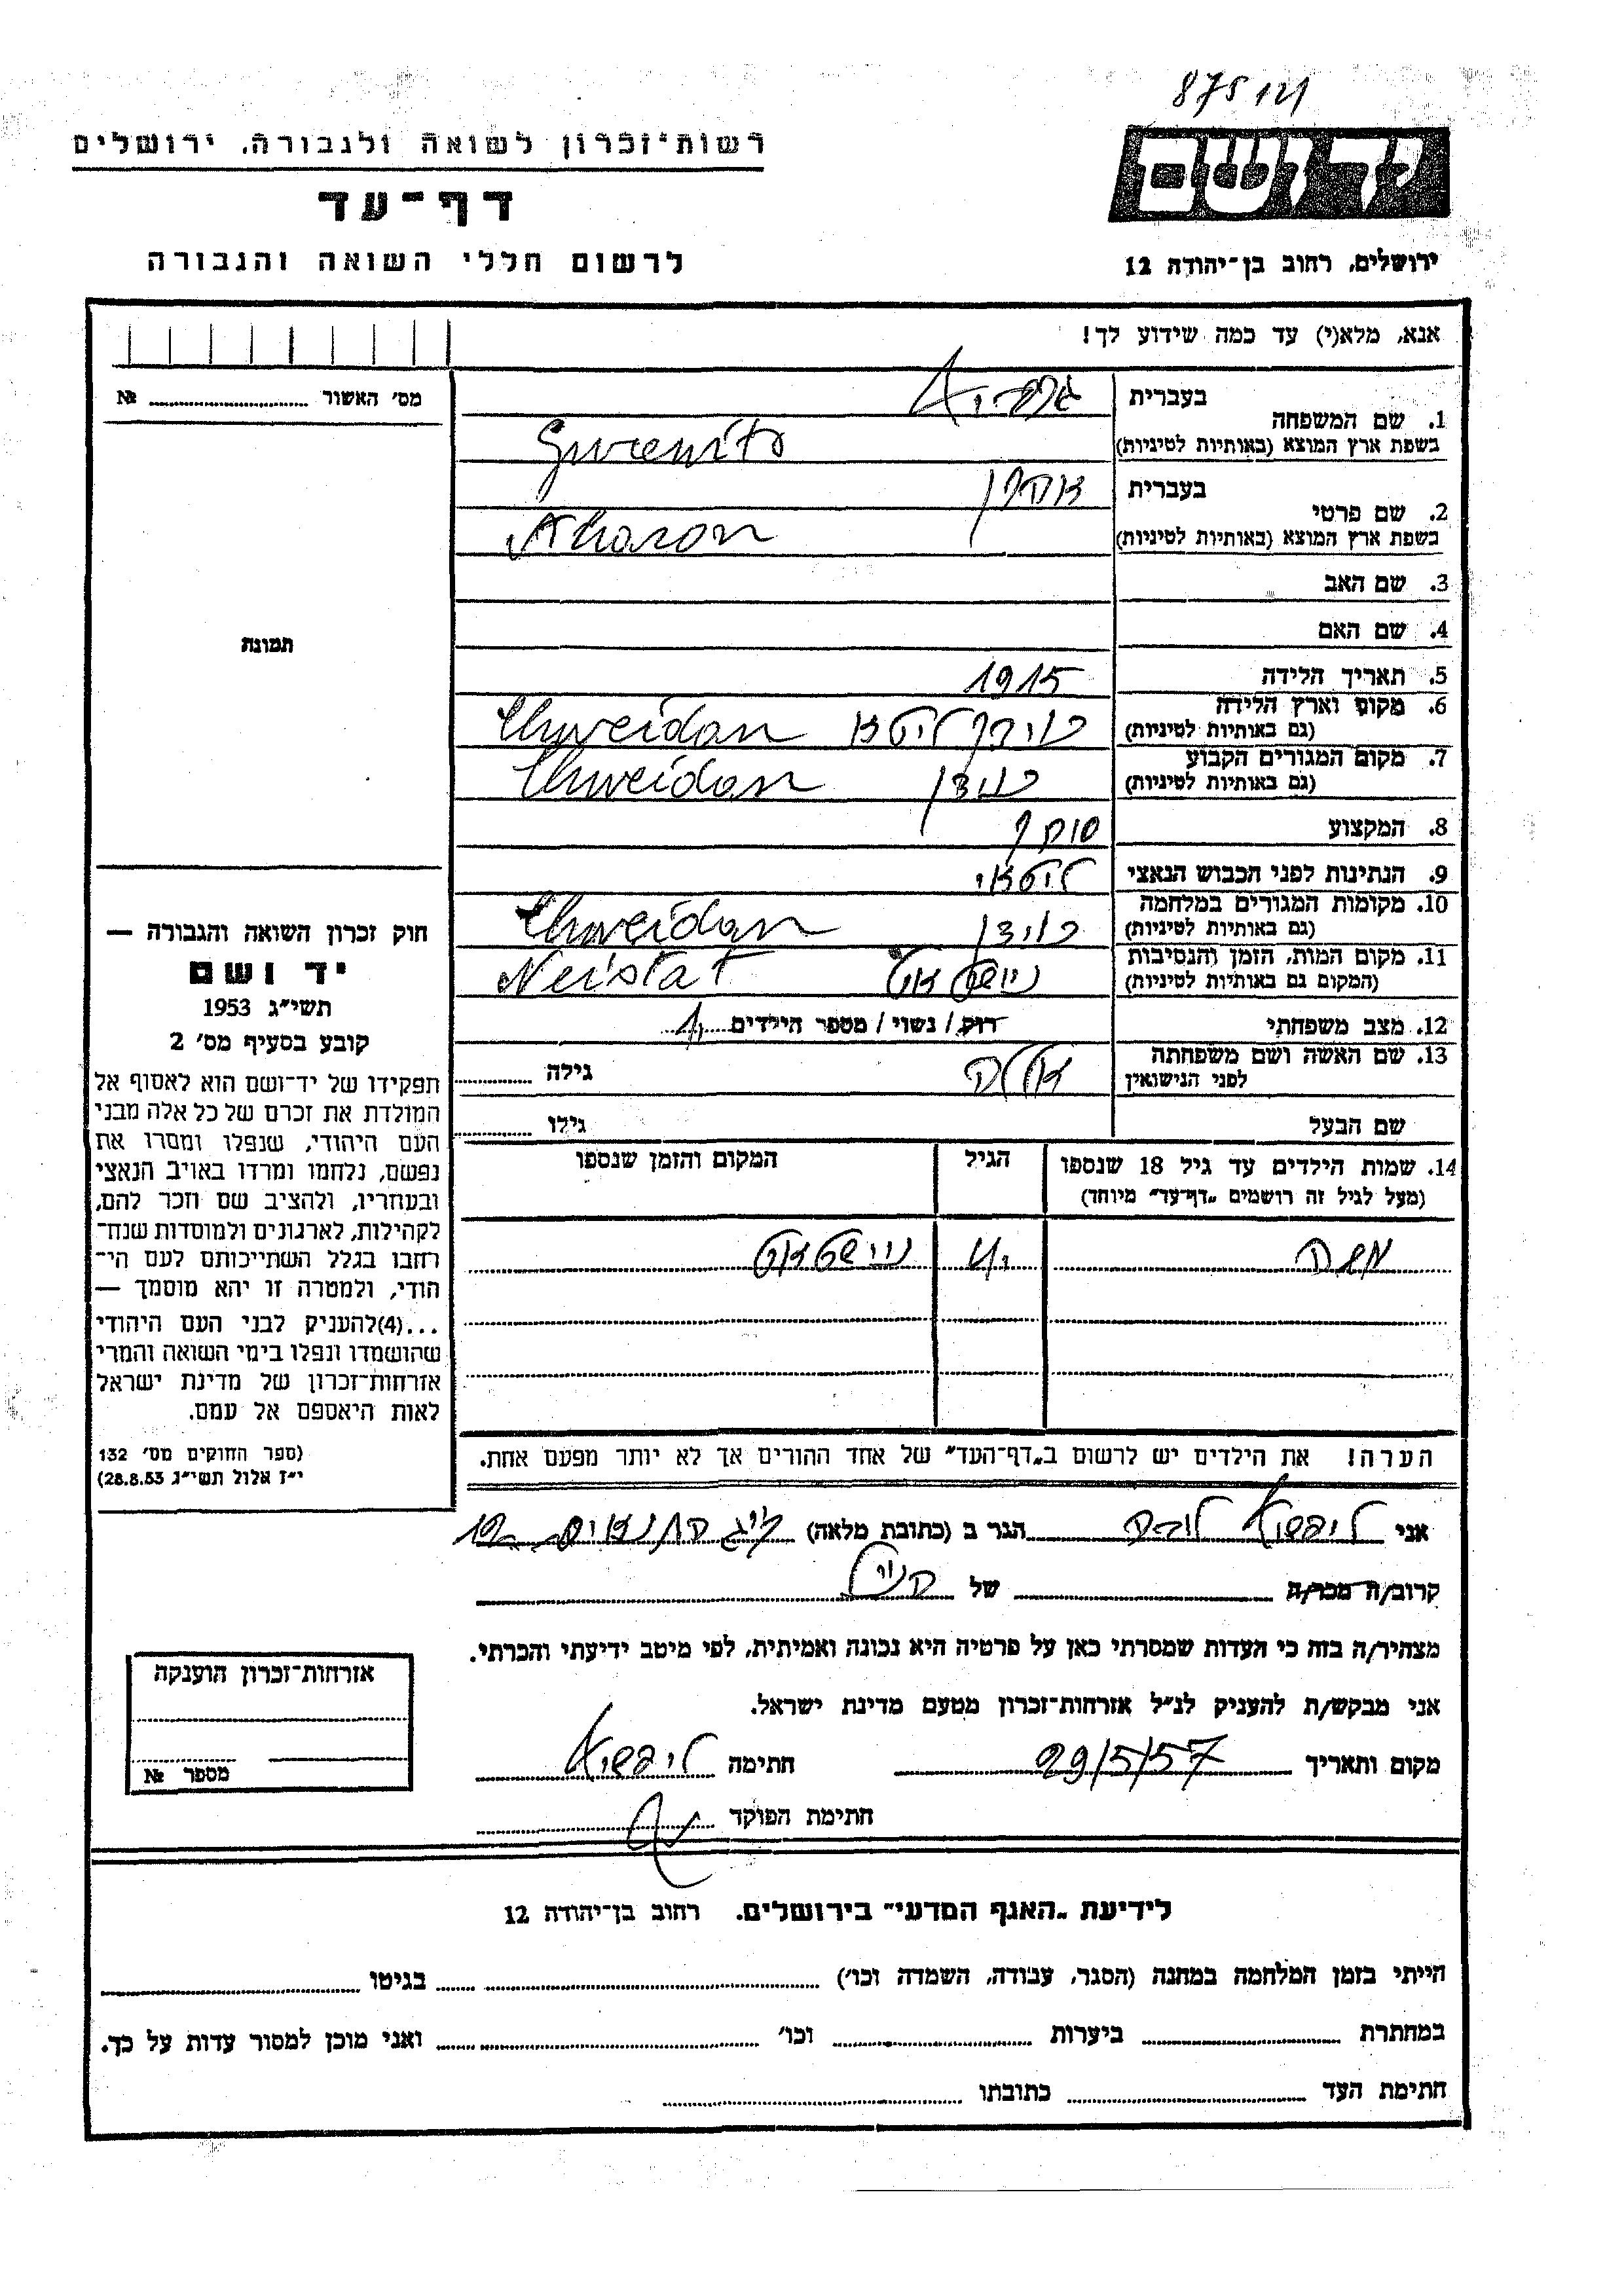 875 121
יד ושם
רשות־זכרון לשואה ולגבורה, ירושלים
דף־עד
לרשום חללי השואה והגבורה
ירושלים, רחוב בן־יהודה 12
אנא, מלא(י) עד כמה שידוע לך!
מס׳ האשור № 
תמונה
1. שם המשפחה
בעברית
בשפת ארץ המוצא (באותיות לטיניות) Gurewits
2. שם פרטי
בעברית אהרן
בשפת ארץ המוצא (באותיות לטיניות) Aharon
3. שם האב
4. שם האם
5. תאריך הלידה 1915
6. מקום וארץ הלידה ליטא Chweidan
(גם באותיות לטיניות)
7. מקום המגורים הקבוע Chweidan
(גם באותיות לטיניות)
8. המקצוע סוחר
9. הנתינות לפני הכבוש הנאצי ליטאי
10. מקומות המגורים במלחמה Chweidan
(גם באותיות לטיניות)
11. מקום המות, הזמן והנסיבות ניישטאט Neistat
(המקום גם באותיות לטיניות)
12. מצב משפחתי רוק / נשוי / מספר הילדים 1
13. שם האשה ושם משפחתה
לפני הנישואין גילה
שם הבעל גילו
14. שמות הילדים עד גיל 18 שנספו הגיל המקום והזמן שנספו
(מעל לגיל זה רושמים „דף־עד״ מיוחד)
משה ניישטאט
הערה! את הילדים יש לרשום ב„דף־העד״ של אחד ההורים אך לא יותר מפעם אחת.
חוק זכרון השואה והגבורה —
יד ושם
תשי״ג 1953
קובע בסעיף מס׳ 2
תפקידו של יד־ושם הוא לאסוף אל
המולדת את זכרם של כל אלה מבני
העם היהודי, שנפלו ומסרו את
נפשם, נלחמו ומרדו באויב הנאצי
ובעוזריו, ולהציב שם וזכר להם,
לקהילות, לארגונים ולמוסדות שנח־
רבו בגלל השתייכותם לעם הי־
הודי, ולמטרה זו יהא מוסמך —
...(4)להעניק לבני העם היהודי
שהושמדו ונפלו בימי השואה והמרי
אזרחות־זכרון של מדינת ישראל
לאות היאספם אל עמם.
(ספר החוקים מס׳ 132
י״ז אלול תשי״ג 28.8.53)
אני ליפשיץ הגר ב (כתובת מלאה)
קרוב/ה מכר/ה של
מצהיר/ה בזה כי העדות שמסרתי כאן על פרטיה היא נכונה ואמיתית, לפי מיטב ידיעתי והכרתי.
אני מבקש/ת להעניק לנ״ל אזרחות־זכרון מטעם מדינת ישראל.
מקום ותאריך 29/5/57 חתימה ליפשיץ
חתימת הפוקד
אזרחות־זכרון הוענקה
מספר №
לידיעת „האגף המדעי״ בירושלים. רחוב בן־יהודה 12
הייתי בזמן המלחמה במחנה (הסגר, עבודה, השמדה וכו׳) בגיטו
במחתרת ביערות וכו׳ ואני מוכן למסור עדות על כך.
חתימת העד כתובתו